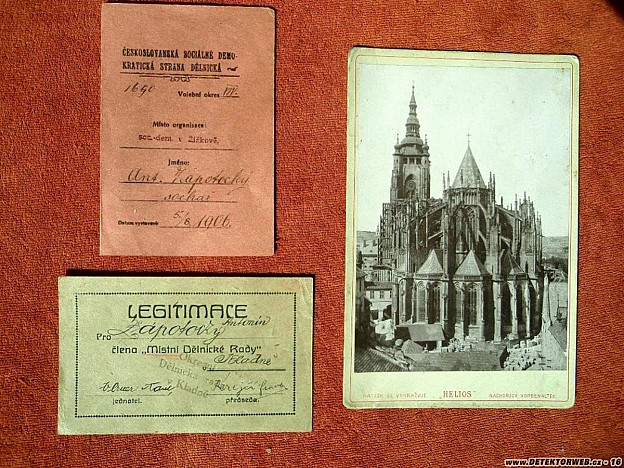 ČESKOSLOVANSKÁ SOCIÁLNĚ DEMO-
KRATICKÁ STRANA DĚLNICKÁ
1690 Volební okres VIII.
Místo organisace:
soc.-dem. v Žižkově,
Jméno:
Ant. Zápotocký
sochař
Datum vystavení: 5/8 1906.
LEGITIMACE
Pro Zápotocký Antonín
člena „Místní Dělnické Rady"
Kladně
Dělnická
Kladno
jednatel. předseda.
"HELIOS"
NACHDRUCK VORBEHALTEN.
www.DETEKTORWEB.cz - 16